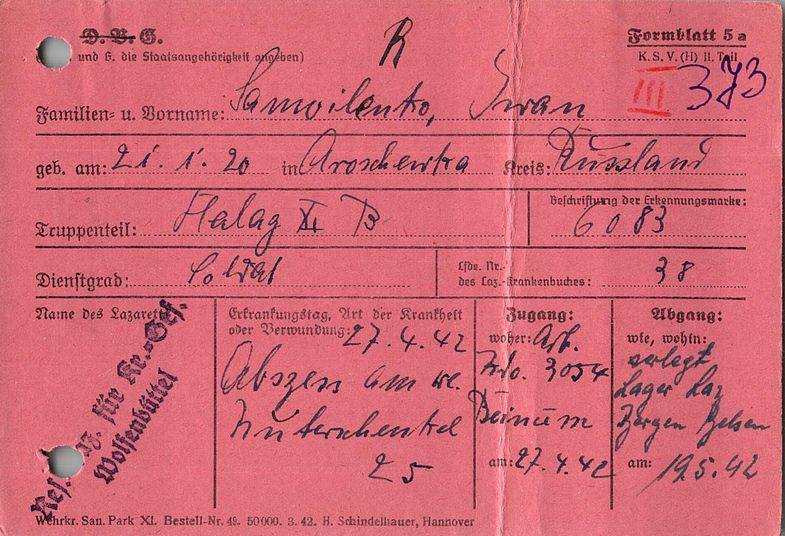 D. V. G.
und G. die Staatsangehörigkeit angeben)
R
Formblatt 5a
K. S. V. (H) II. Teil
III 373
Familien- u. Vorname: Samoilenko, Iwan
geb. am: 21. 1. 20 in Aroschewka Kreis: Russland
Truppenteil: Stalag XI B
Beschriftung der Erkennungsmarke: 6083
Dienstgrad: Soldat
Lfde. Nr. des Laz.-Krankenbuches: 38
Name des Lazaretts
Res. Laz. für Kr.-Gef.
Wolfenbüttel
Erkrankungstag, Art der Krankheit
oder Verwundung: 27. 4. 42
Abszess am
Unterschenkel
25
Zugang:
woher: Arb.
Kdo. 3054
Beinum
am: 27. 4. 42
Abgang:
wie, wohin:
verlegt
Lager Laz
Bergen Belsen
am: 19. 5. 42
Wehrkr. San. Park XI. Bestell-Nr. 49. 50000. 3. 42. H. Schindelhauer, Hannover